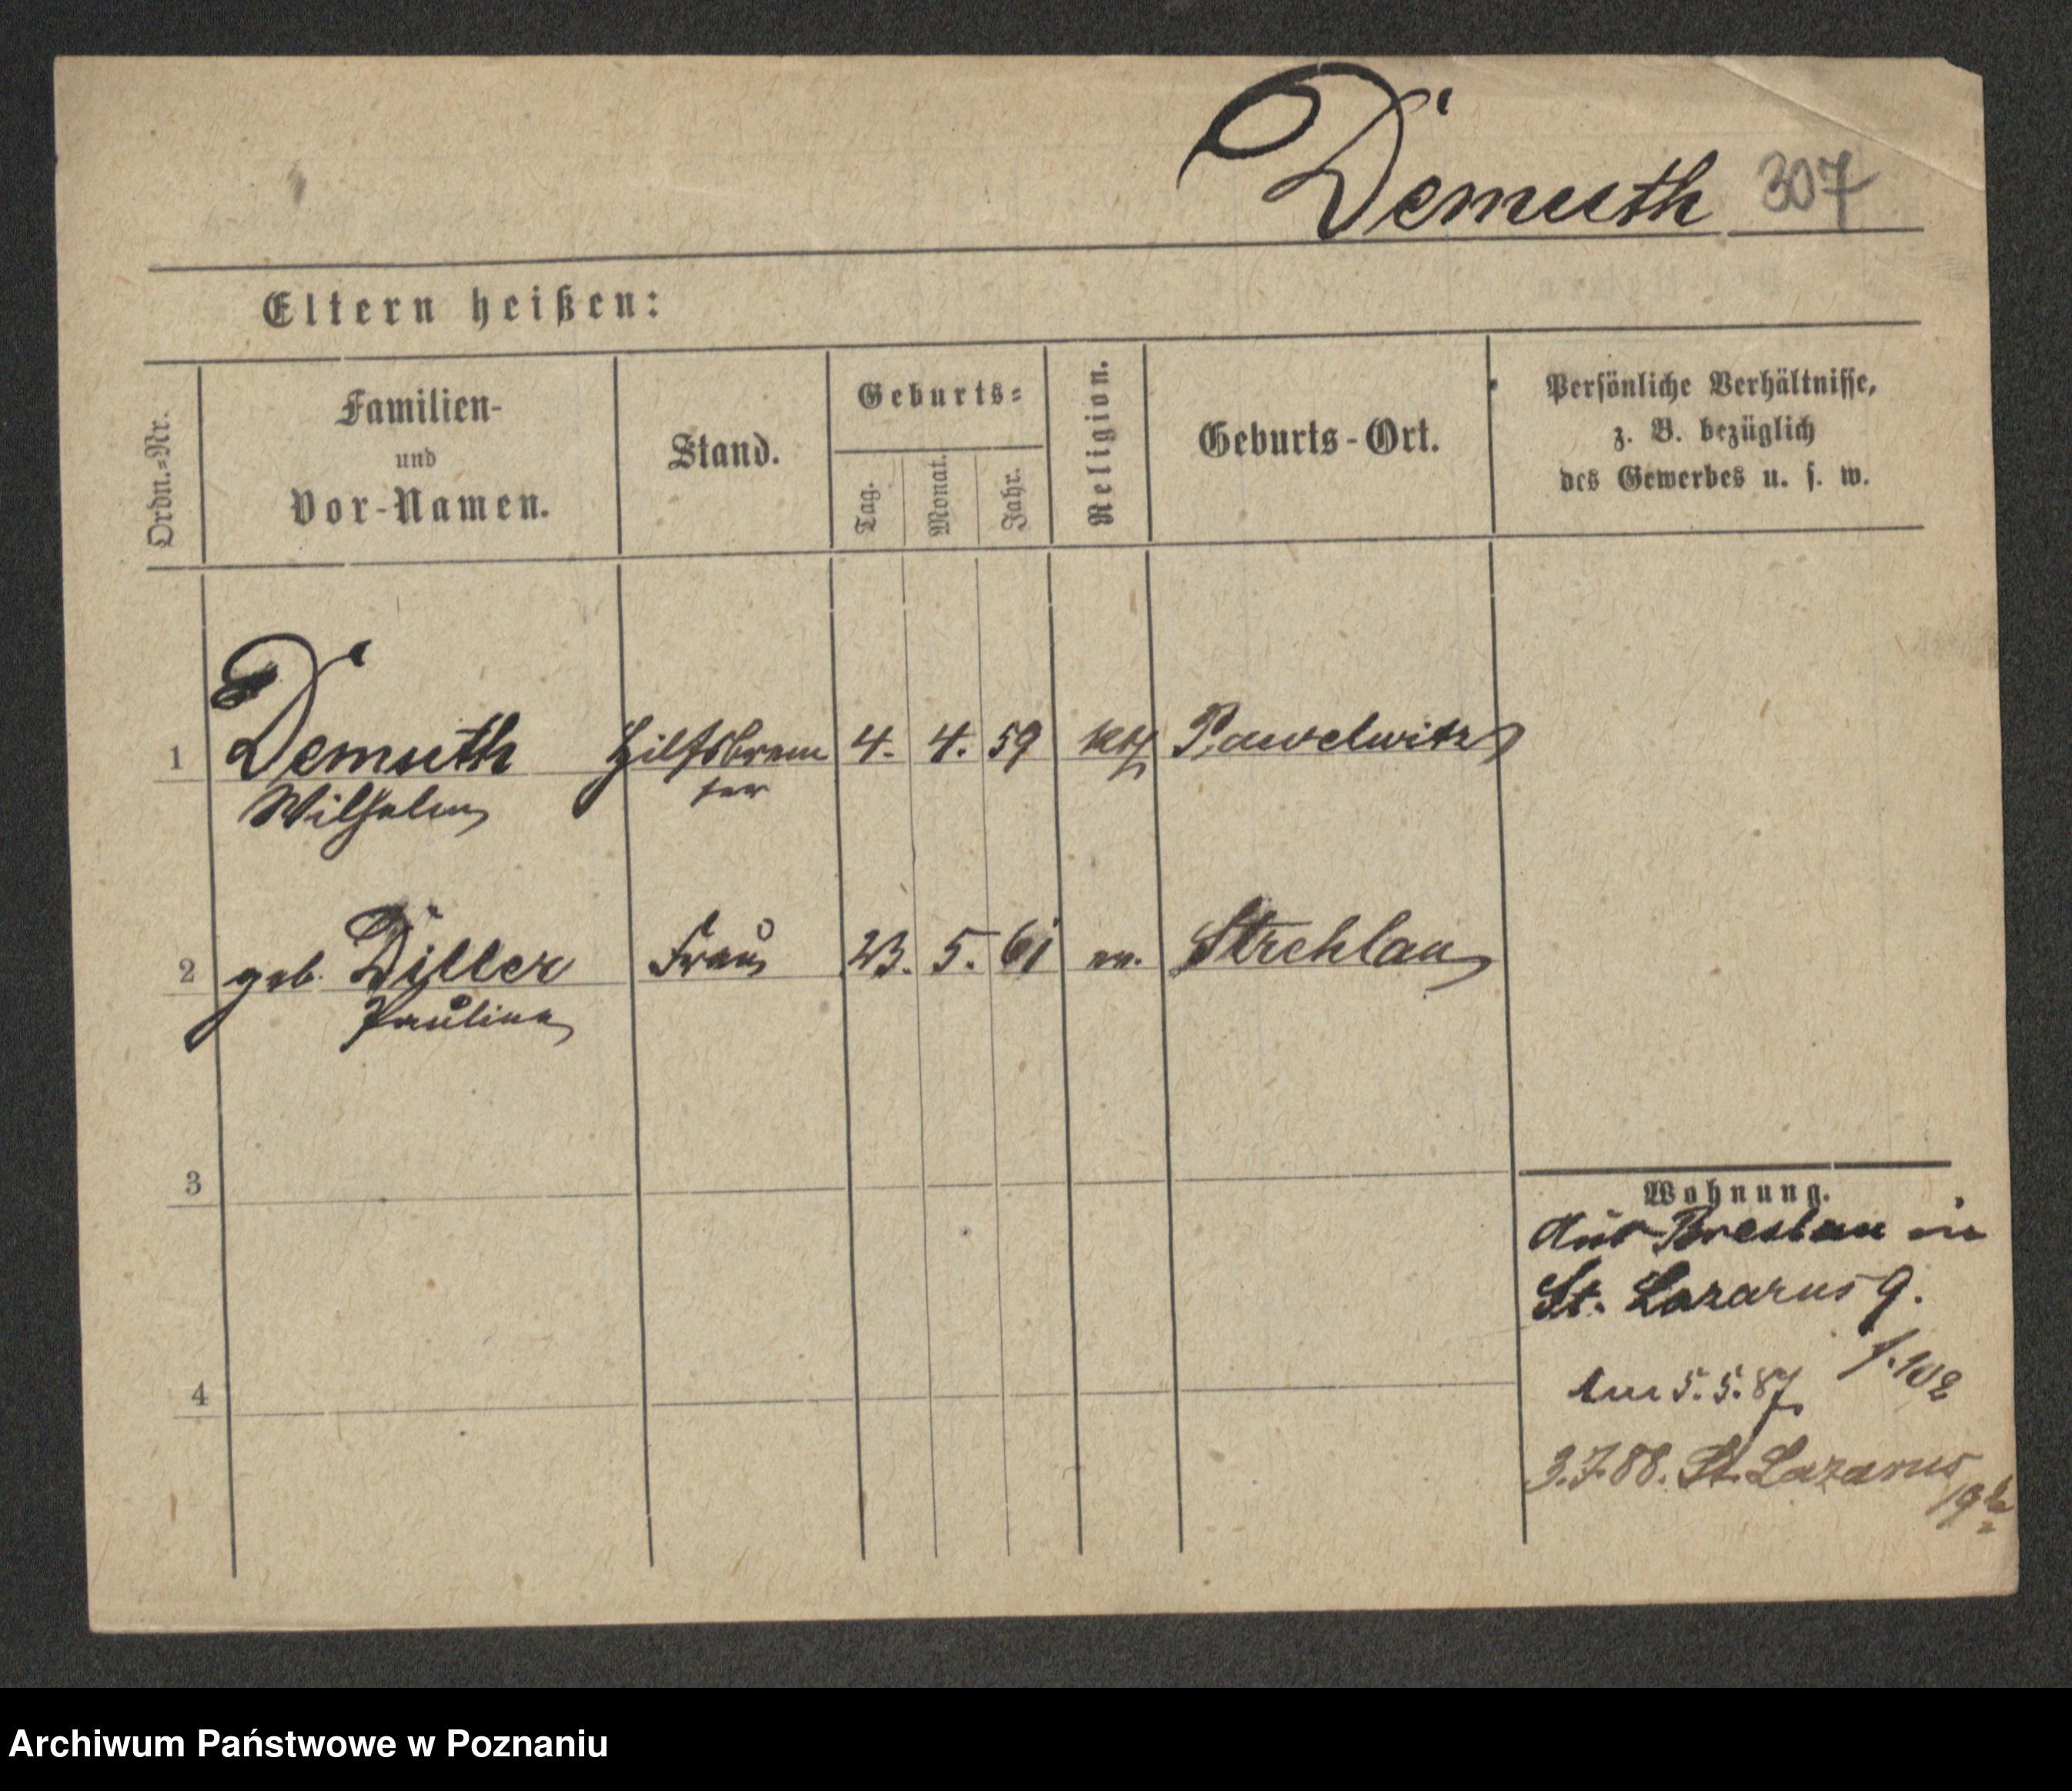 Demuth 307
Eltern heißen:
Ordn.=Nr.
Familien-
und
Vor-Namen.
Stand.
Geburts=
Tag.
Monat.
Jahr.
Religion.
Geburts-Ort.
Persönliche Verhältnisse,
z. B. bezüglich
des Gewerbes u. s. w.
1 Demuth Hilfsbrem 4. 4. 59 kth Pawelwitz
Wilhelm ser
2 geb. Diller Frau 23. 5. 61 ev. Strehlau
Pauline
3
Wohnung.
Aus Breslau in
St. Lazarus 9.
4
am 5.5.87
3.7.88. St. Lazarus
19
Archiwum Państwowe w Poznaniu